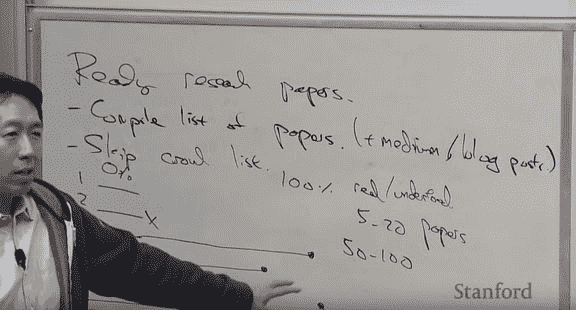 Ready reseach papers.
- Compile list of papers. (+ medium / blog posts)
- Skip around list.
0%
100% read/understand
1
2 X
5-20 papers
50-100
Stanford